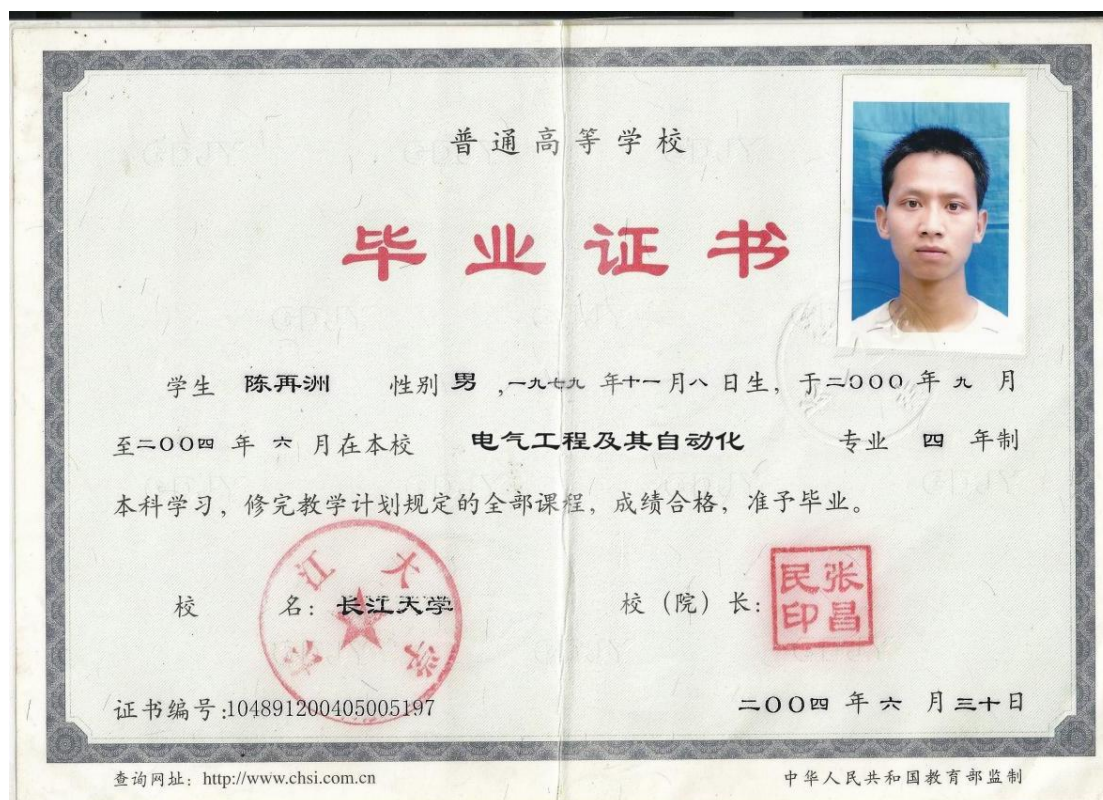 普通高等学校
毕业证书
学生 陈再洲 性别 男 ,一九七九 年十一月八 日生，于二000 年 九 月
至二00四 年 六 月在本校 电气工程及其自动化 专业 四 年制
本科学习，修完教学计划规定的全部课程，成绩合格，准予毕业。
校 名：长江大学 校（院）长：
长江大学
张昌民印
证书编号:104891200405005197 二00四 年 六 月 三十日
查询网址：http://www.chsi.com.cn 中华人民共和国教育部监制